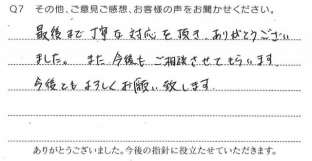 Q7 その他、ご意見ご感想、お客様の声をお聞かせください。
最後まで丁寧な対応を頂き、ありがとうござい
ました。また今後もご相談させてもらいます。
今後ともよろしくお願い致します。
ありがとうございました。今後の指針に役立たせていただきます。